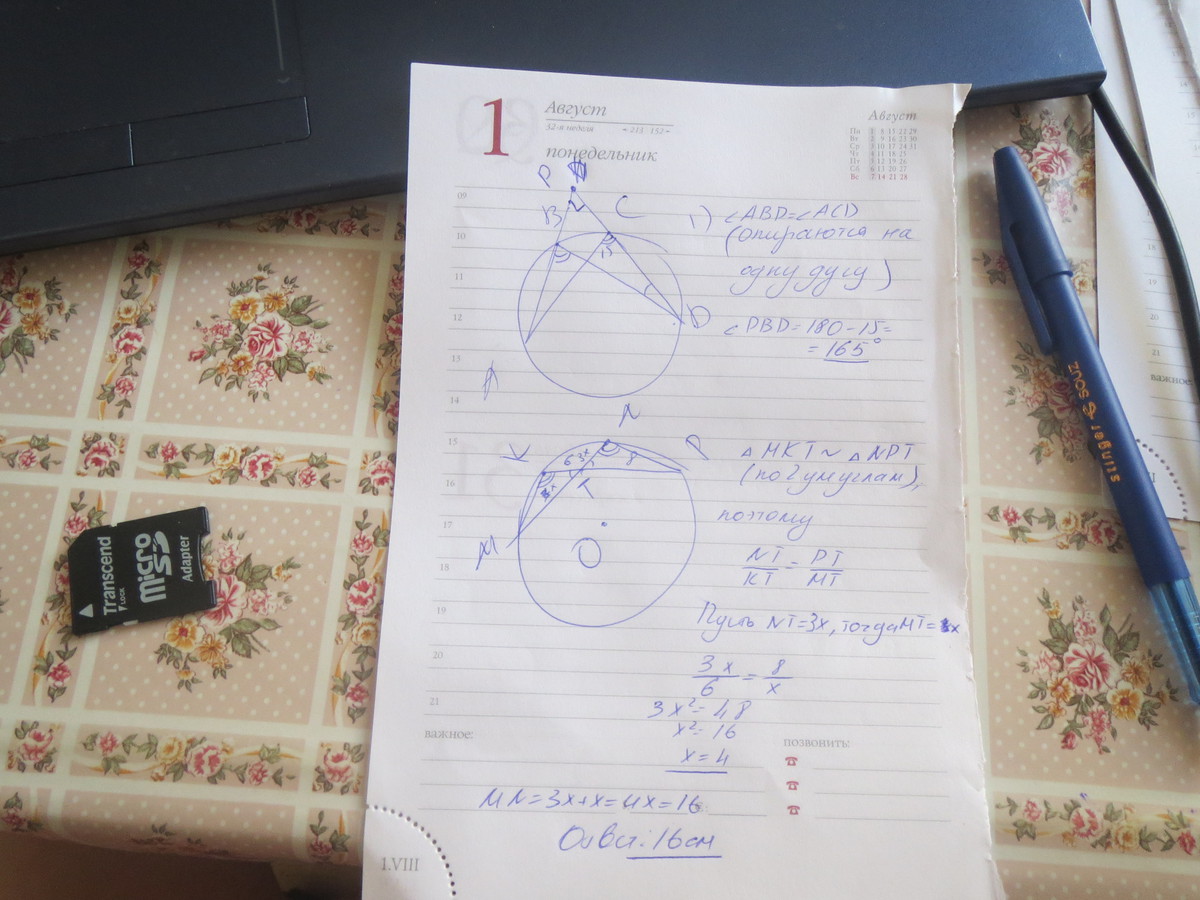 1
Август
32-я неделя
- 213 152 -
понедельник
Август
Пн 1 8 15 22 29
Вт 2 9 16 23 30
Ср 3 10 17 24 31
Чт 4 11 18 25
Пт 5 12 19 26
Сб 6 13 20 27
Вс 7 14 21 28
09
10
11
12
13
14
15
16
17
18
19
20
21
P
B
C
15
D
A
1) ∠ABD=∠ACD
(опираются на
одну дугу)
∠PBD = 180 - 15 =
= 165°
N
K
P
6
3x
8
x
T
M
O
△MKT ~ △NPT
(по 2 ум углам),
поэтому
NT/KT = PT/MT
Пусть NT=3x, тогда MT=x
3x/6 = 8/x
3x² = 48
x² = 16
x = 4
важное:
позвонить:
MN=3x+x=4x=16
Ответ: 16 см
1.VIII
Transcend
LOCK
micro
SD
Adapter
szinger SOUZ
18
19
20
21
важное